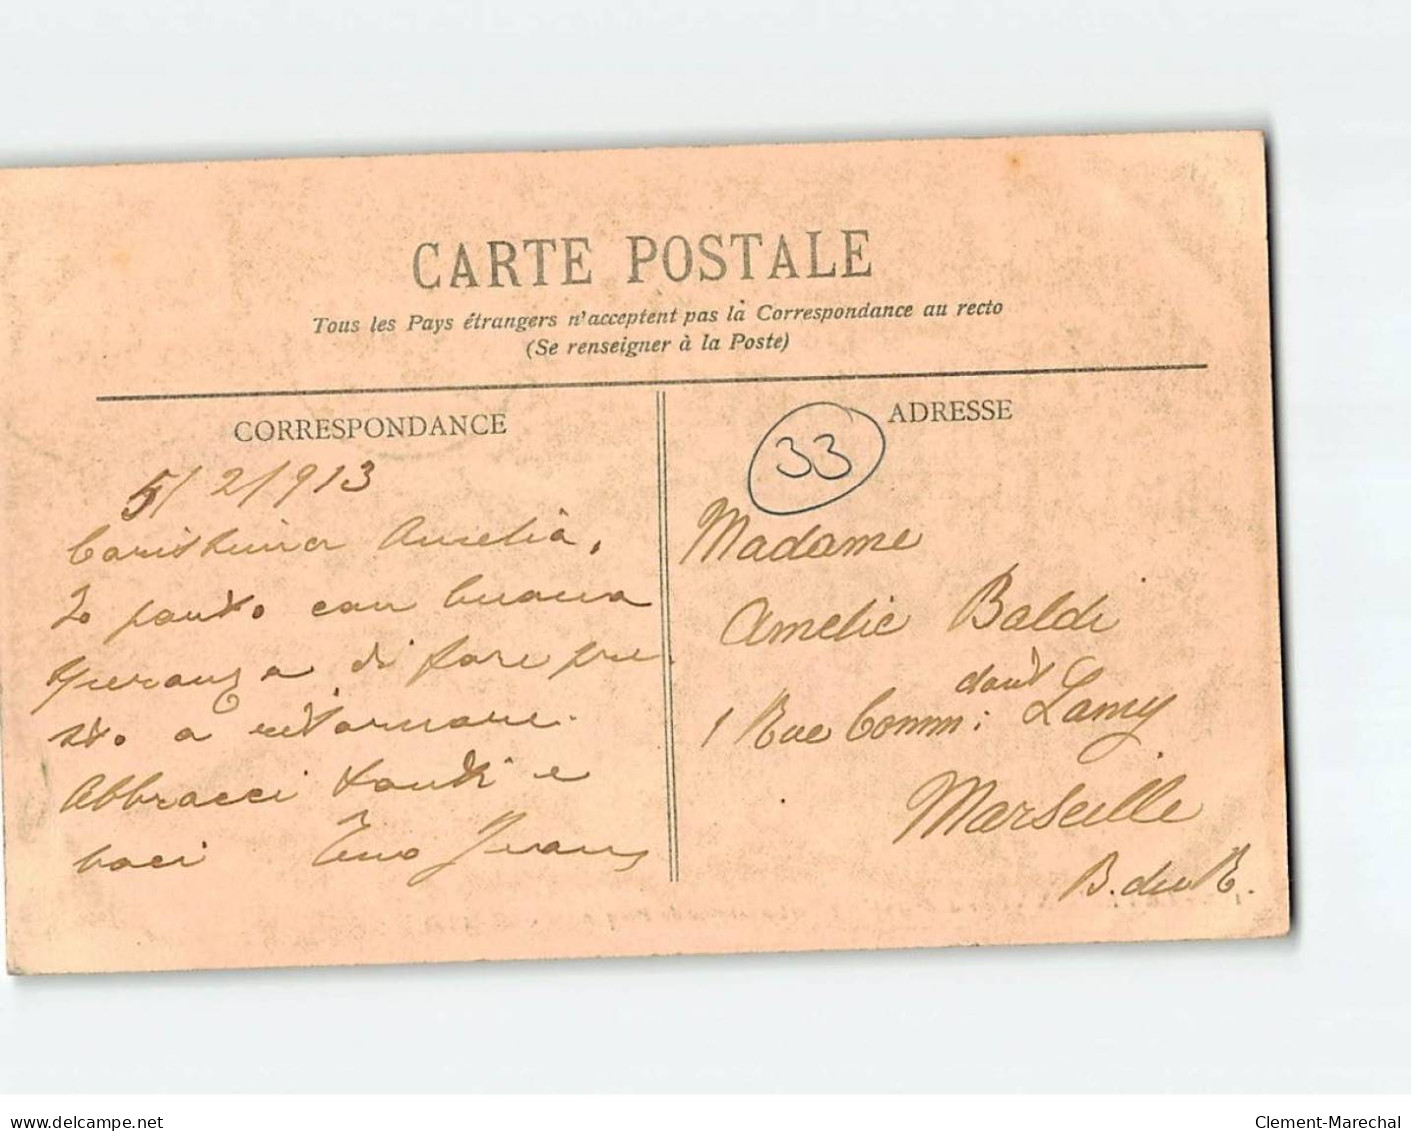 CARTE POSTALE
Tous les Pays étrangers n'acceptent pas la Correspondance au recto
(Se renseigner à la Poste)
CORRESPONDANCE
ADRESSE
33
5/2/913
Carissima Aurelia,
Io parto con buona
speranza di fare pre
sto a ritornare.
Abbracci tanti e
baci Tuo
Madame
Amelie Baldi
1 Rue Comm: Lamy
Marseille
B. du R.
delcampe.net
Clement-Marechal